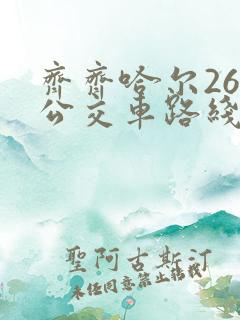 齊齊哈尔26
公交車路綫
聖阿古斯汀
未经同意禁止转载